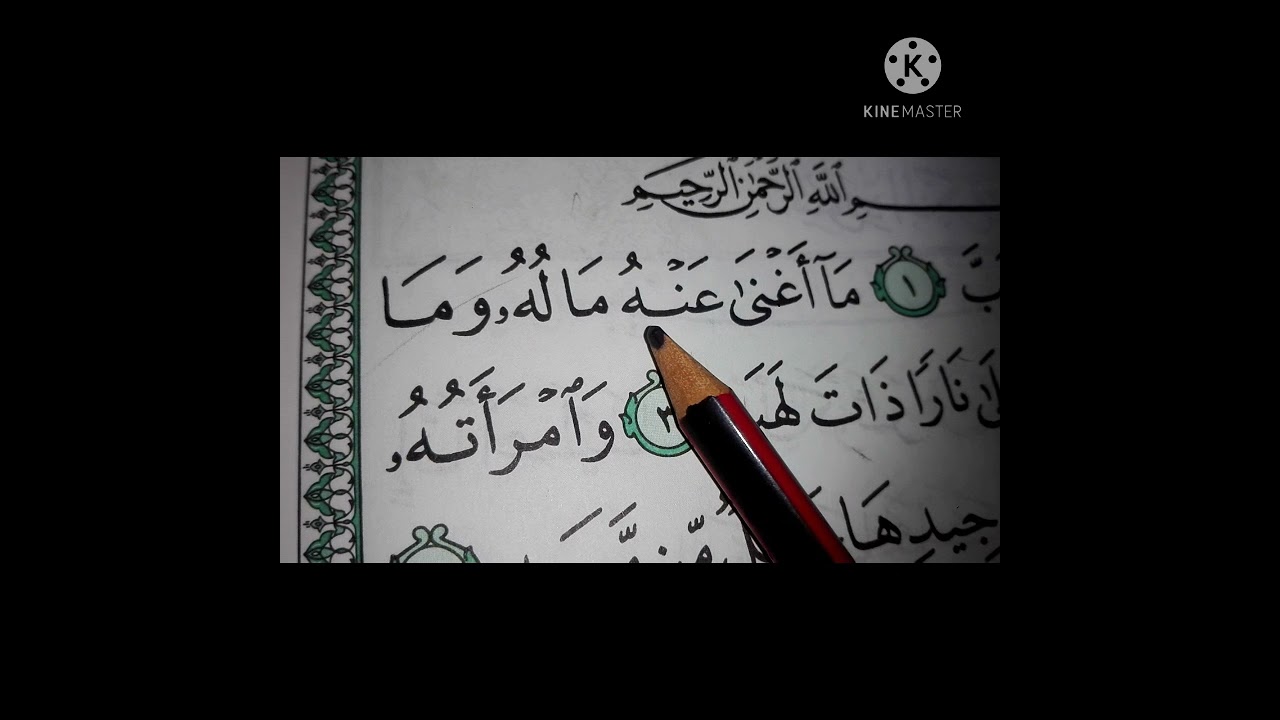 KINEMASTER
ٱللَّهِ ٱلرَّحْمَٰنِ ٱلرَّحِيمِ
١ مَآ أَغْنَىٰ عَنْهُ مَالُهُۥ وَمَا
نَارًا ذَاتَ ٣ وَٱمْرَأَتُهُۥ
جِيدِهَا